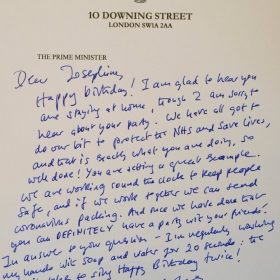 10 DOWNING STREET
LONDON SW1A 2AA
THE PRIME MINISTER
Dear Josephine,
Happy birthday! I am glad to hear you
are staying at home, though I am sorry to
hear about your party. We have all got to
do our bit to protect the NHS and save lives,
and that is exactly what you are doing, so
well done! You are setting a great example.
We are working round the clock to keep people
safe, and if we work together we can send
coronavirus packing. And once we have done that
you can DEFINITELY have a party with your friends!
In answer to your question - I'm regularly washing
my hands with soap and water for 20 seconds:
to sing Happy Birthday twice!